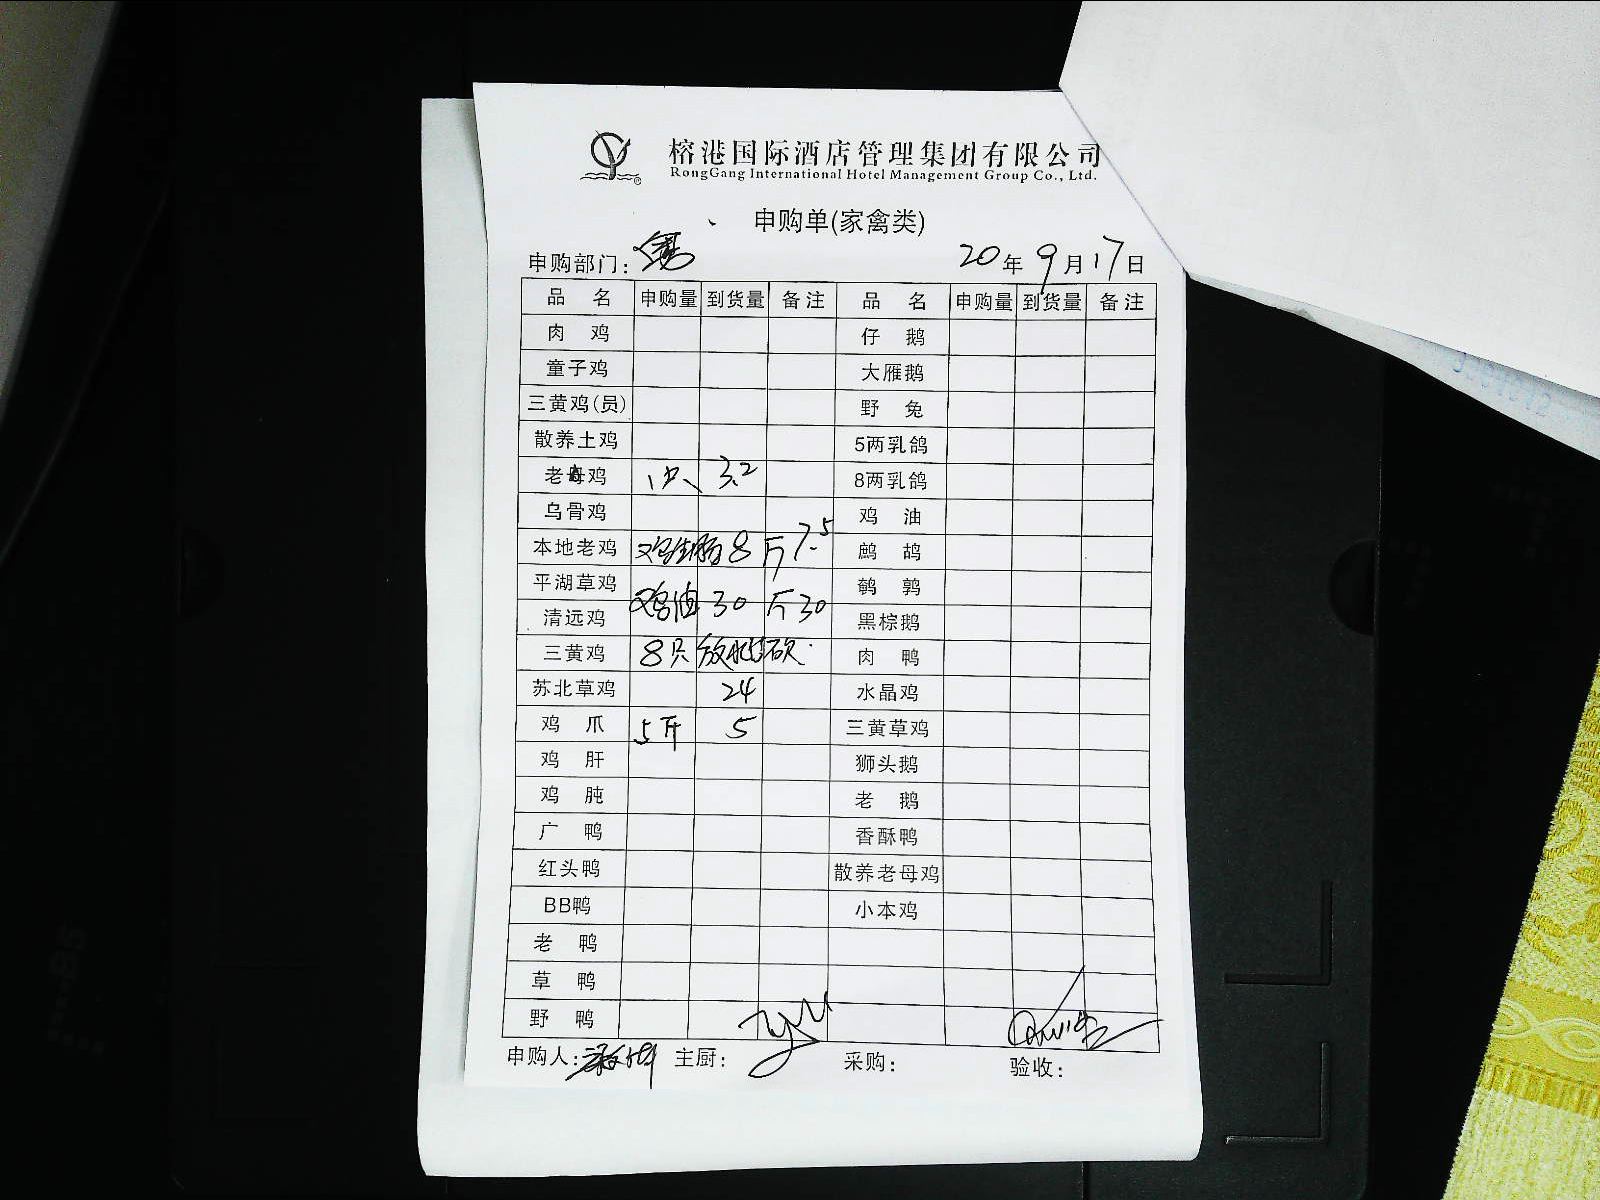 榕港国际酒店管理集团有限公司
RongGang International Hotel Management Group Co., Ltd.
申购单(家禽类)
申购部门: 20年9月17日
品 名 申购量 到货量 备注 品 名 申购量 到货量 备注
肉 鸡 仔 鹅
童子鸡 大雁鹅
三黄鸡(员) 野 兔
散养土鸡 5两乳鸽
老母鸡 1只 3.2 8两乳鸽
乌骨鸡 鸡 油
本地老鸡 鸡生肠 8斤 7.5 鹧 鸪
平湖草鸡 鹌 鹑
清远鸡 鸡油 30斤 30 黑棕鹅
三黄鸡 8只 肉 鸭
苏北草鸡 24 水晶鸡
鸡 爪 5斤 5 三黄草鸡
鸡 肝 狮头鹅
鸡 肫 老 鹅
广 鸭 香酥鸭
红头鸭 散养老母鸡
BB鸭 小本鸡
老 鸭
草 鸭
野 鸭
申购人: 主厨: 采购: 验收: